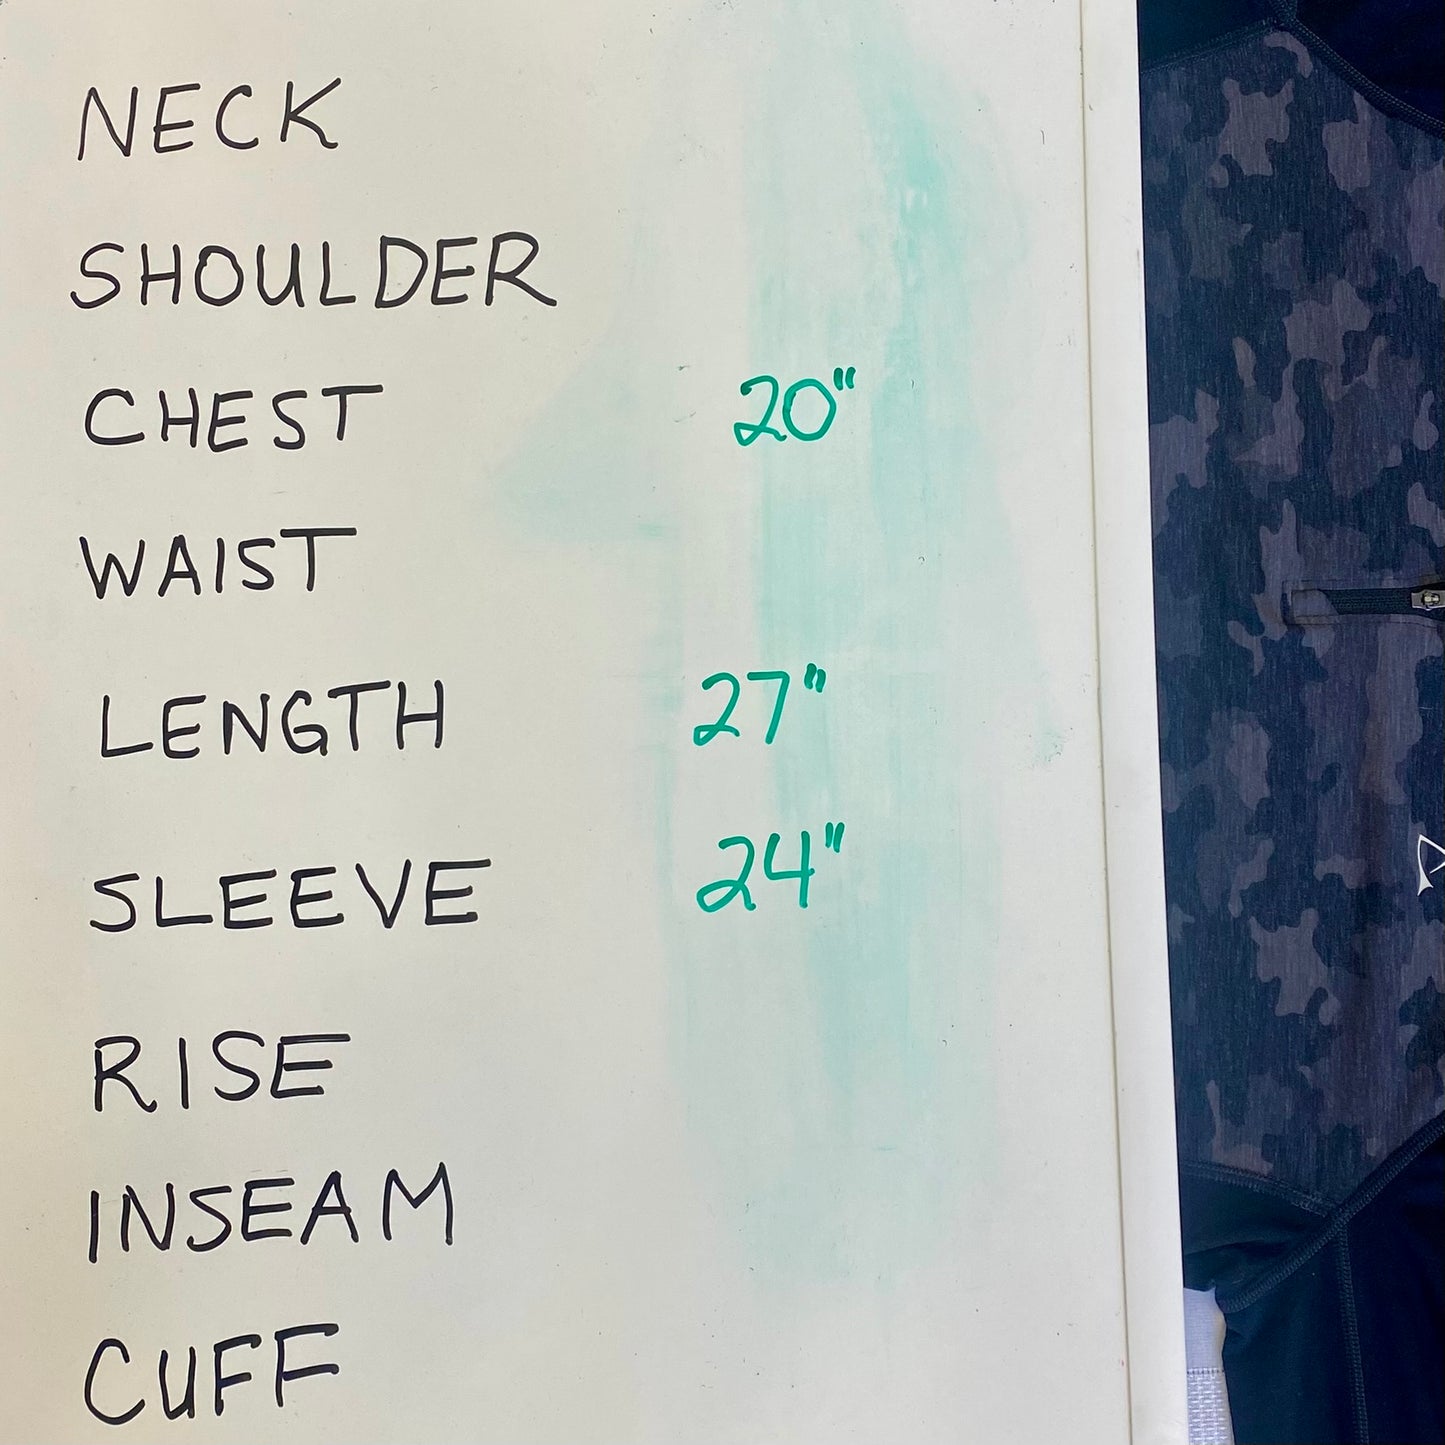 NECK
SHOULDER
CHEST 20"
WAIST
LENGTH 27"
SLEEVE 24"
RISE
INSEAM
CUFF